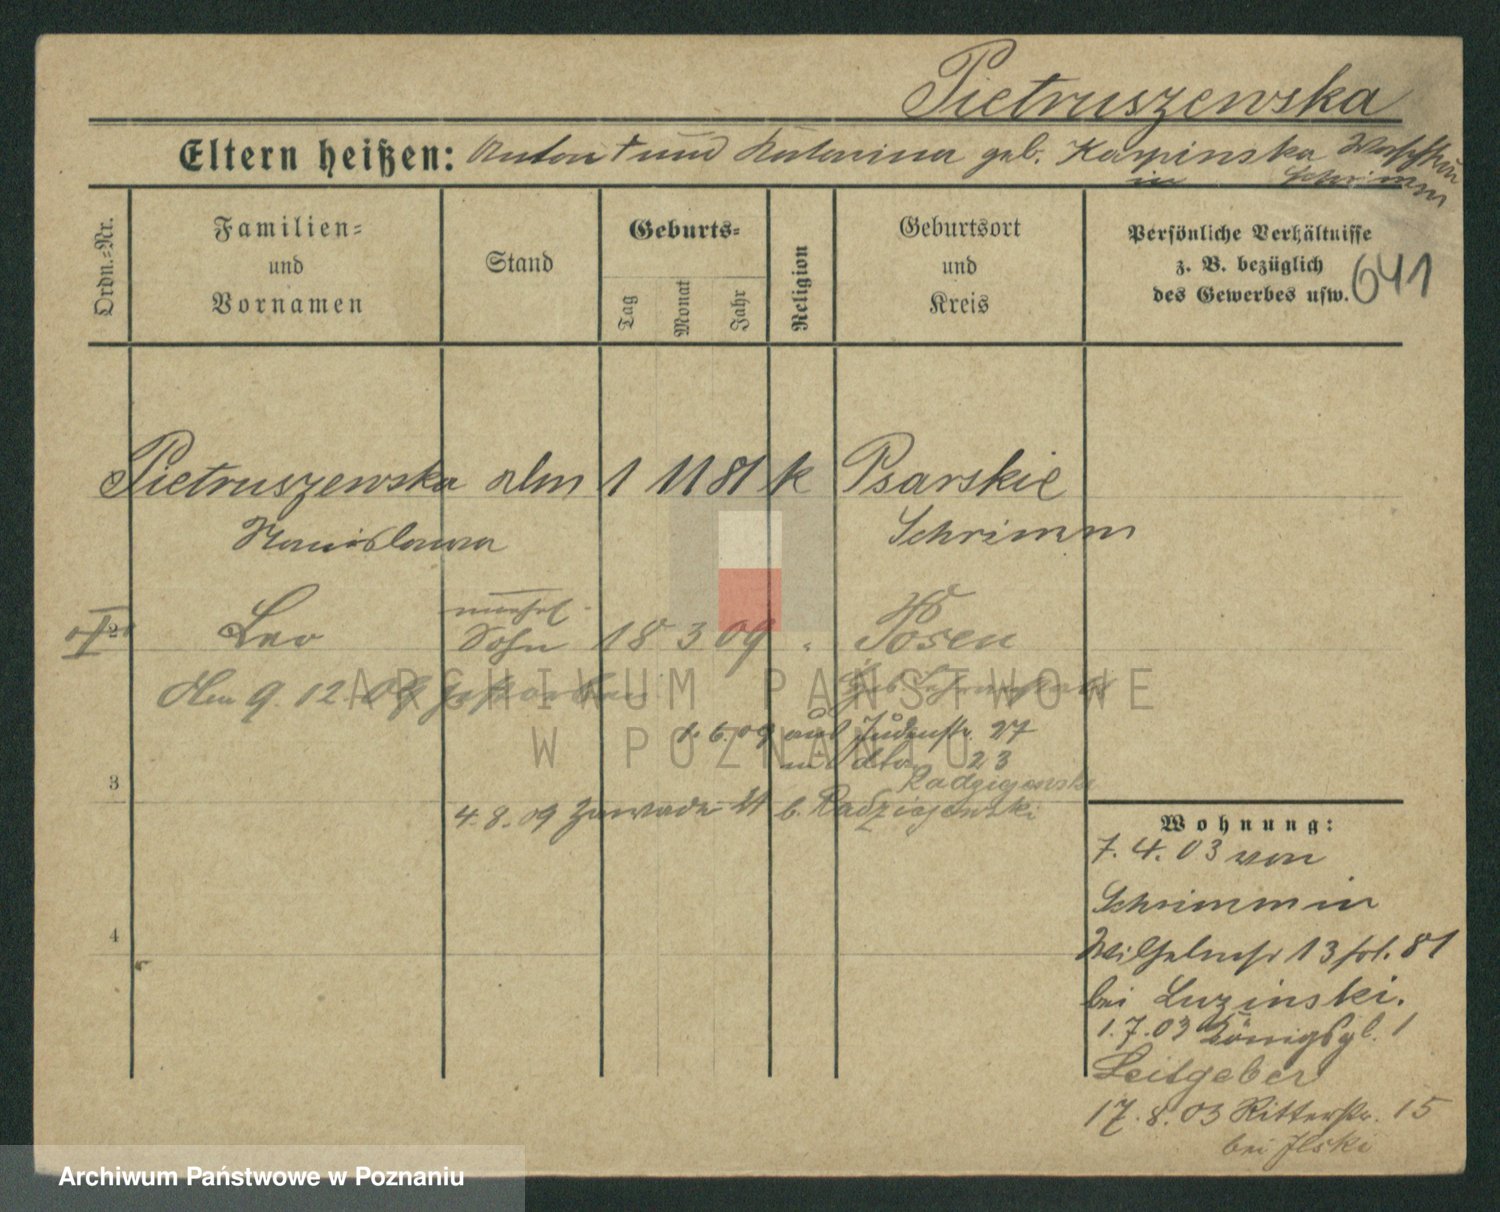 Pietruszewska
Eltern heißen: Anton † und Katarina geb. Karpinska
in Schrimm
Ordn.-Nr.
Familien-
und
Vornamen
Stand
Geburts-
Tag
Monat
Jahr
Religion
Geburtsort
und
Kreis
Persönliche Verhältnisse
z. B. bezüglich
des Gewerbes usw.
641
Pietruszewska 1 11 81 k Psarskie
Stanislawa Schrimm
2 Leo unehel. Sohn 18 3 09 " Posen
Am 9. 12. 09 gestorben
1. 6. 09 aus Judenstr. 27
23
Radziejewski
3
4. 8. 09 Zawade 21 b. Radziejewski
Wohnung:
7. 4. 03 von
Schrimm in
Wilhelmstr 13 81
bei Luzinski.
1. 7. 03 Königspl. 1
Leitgeber
4
17. 8. 03 Ritterstr. 15
bei Ilski
ARCHIWUM PAŃSTWOWE
W POZNANIU
Archiwum Państwowe w Poznaniu